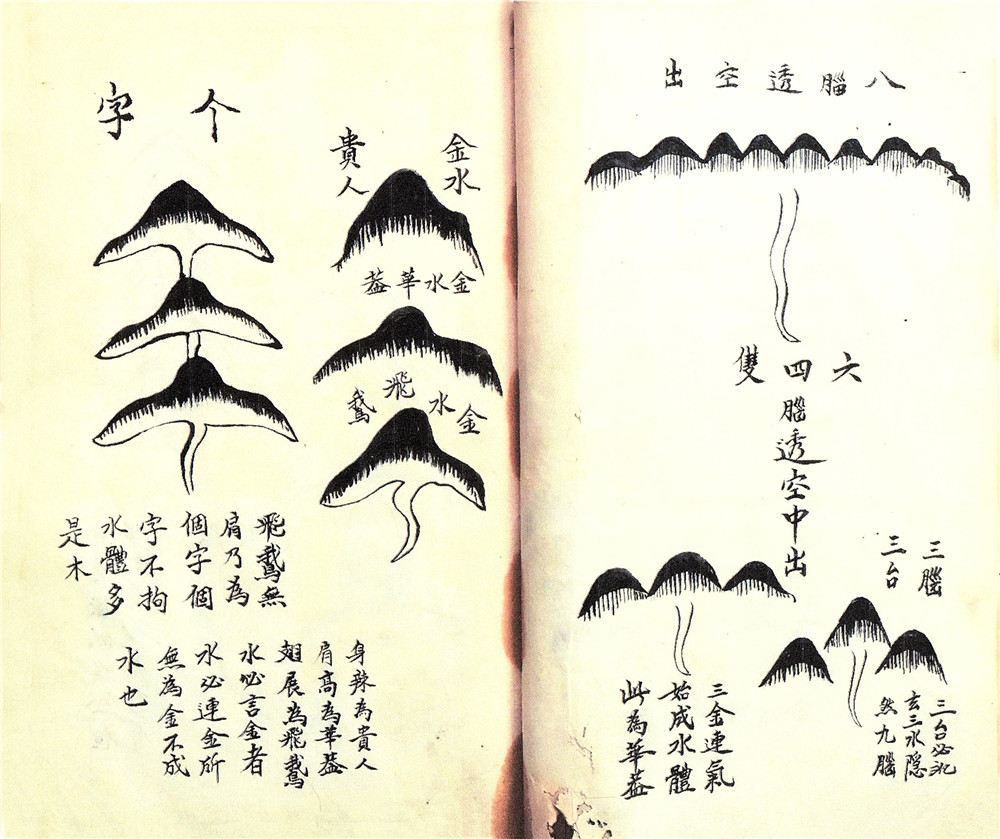 八腦透空出
六四雙
腦透空中出
三腦
三台
三台必
玄三水隐
然九腦
三金連氣
始成水體
此為華蓋
金水
貴人
金水華蓋
金水飛鵞
个字
飛鵞無
肩乃為
個字個
字不拘
水體多
是木
身竦為貴人
肩高為華蓋
翅展為飛鵞
水必言金者
水必連金所
無為金不成
水也